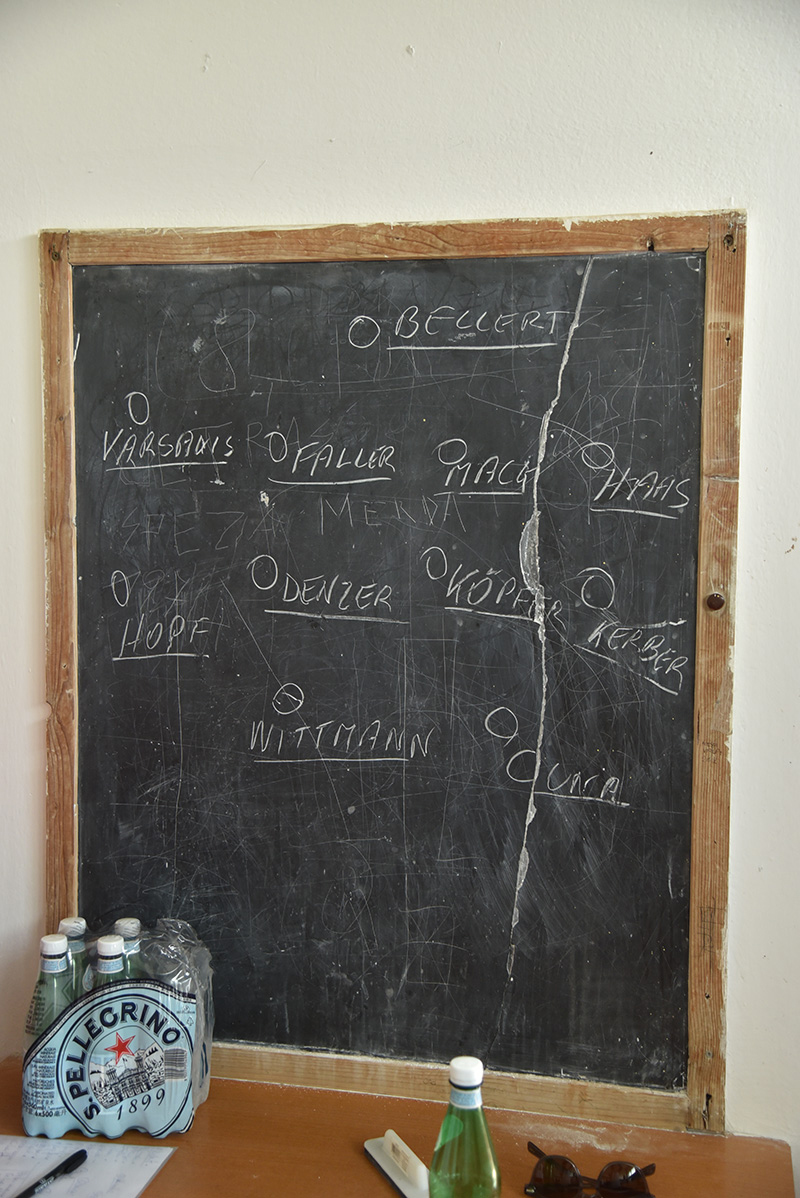 BELLERT
VARSAKIS FALLER MACK HAAS
MERDA
HOPF DENZER KÖPFER KERBER
WITTMANN
S.PELLEGRINO
1899